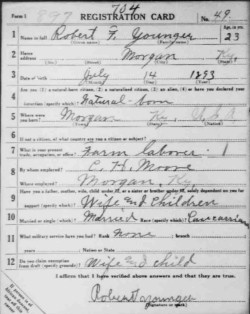 Form 1 897 704 REGISTRATION CARD No. 49
1 Name in full Robert F. Younger Age, in yrs. 23
2 Home address Morgan Ky.
3 Date of birth July 14 1893
4 Are you (1) a natural-born citizen, (2) a naturalized citizen, (3) an alien, (4) or have you declared your
intention (specify which)? Natural-born
5 Where were you born? Morgan Ky. U.S.A
6 If not a citizen, of what country are you a citizen or subject?
7 What is your present trade, occupation, or office? Farm laborer
8 By whom employed? H. Moore
Where employed? Morgan, Ky.
9 Have you a father, mother, wife, child under 12, or a sister or brother under 12, solely dependent on you for
support (specify which)? Wife and Children
10 Married or single (which)? Married Race (specify which)? Caucasian
11 What military service have you had? Rank None branch
years Nation or State
12 Do you claim exemption from draft (specify grounds)? Wife and child
I affirm that I have verified above answers and that they are true.
Robert Younger